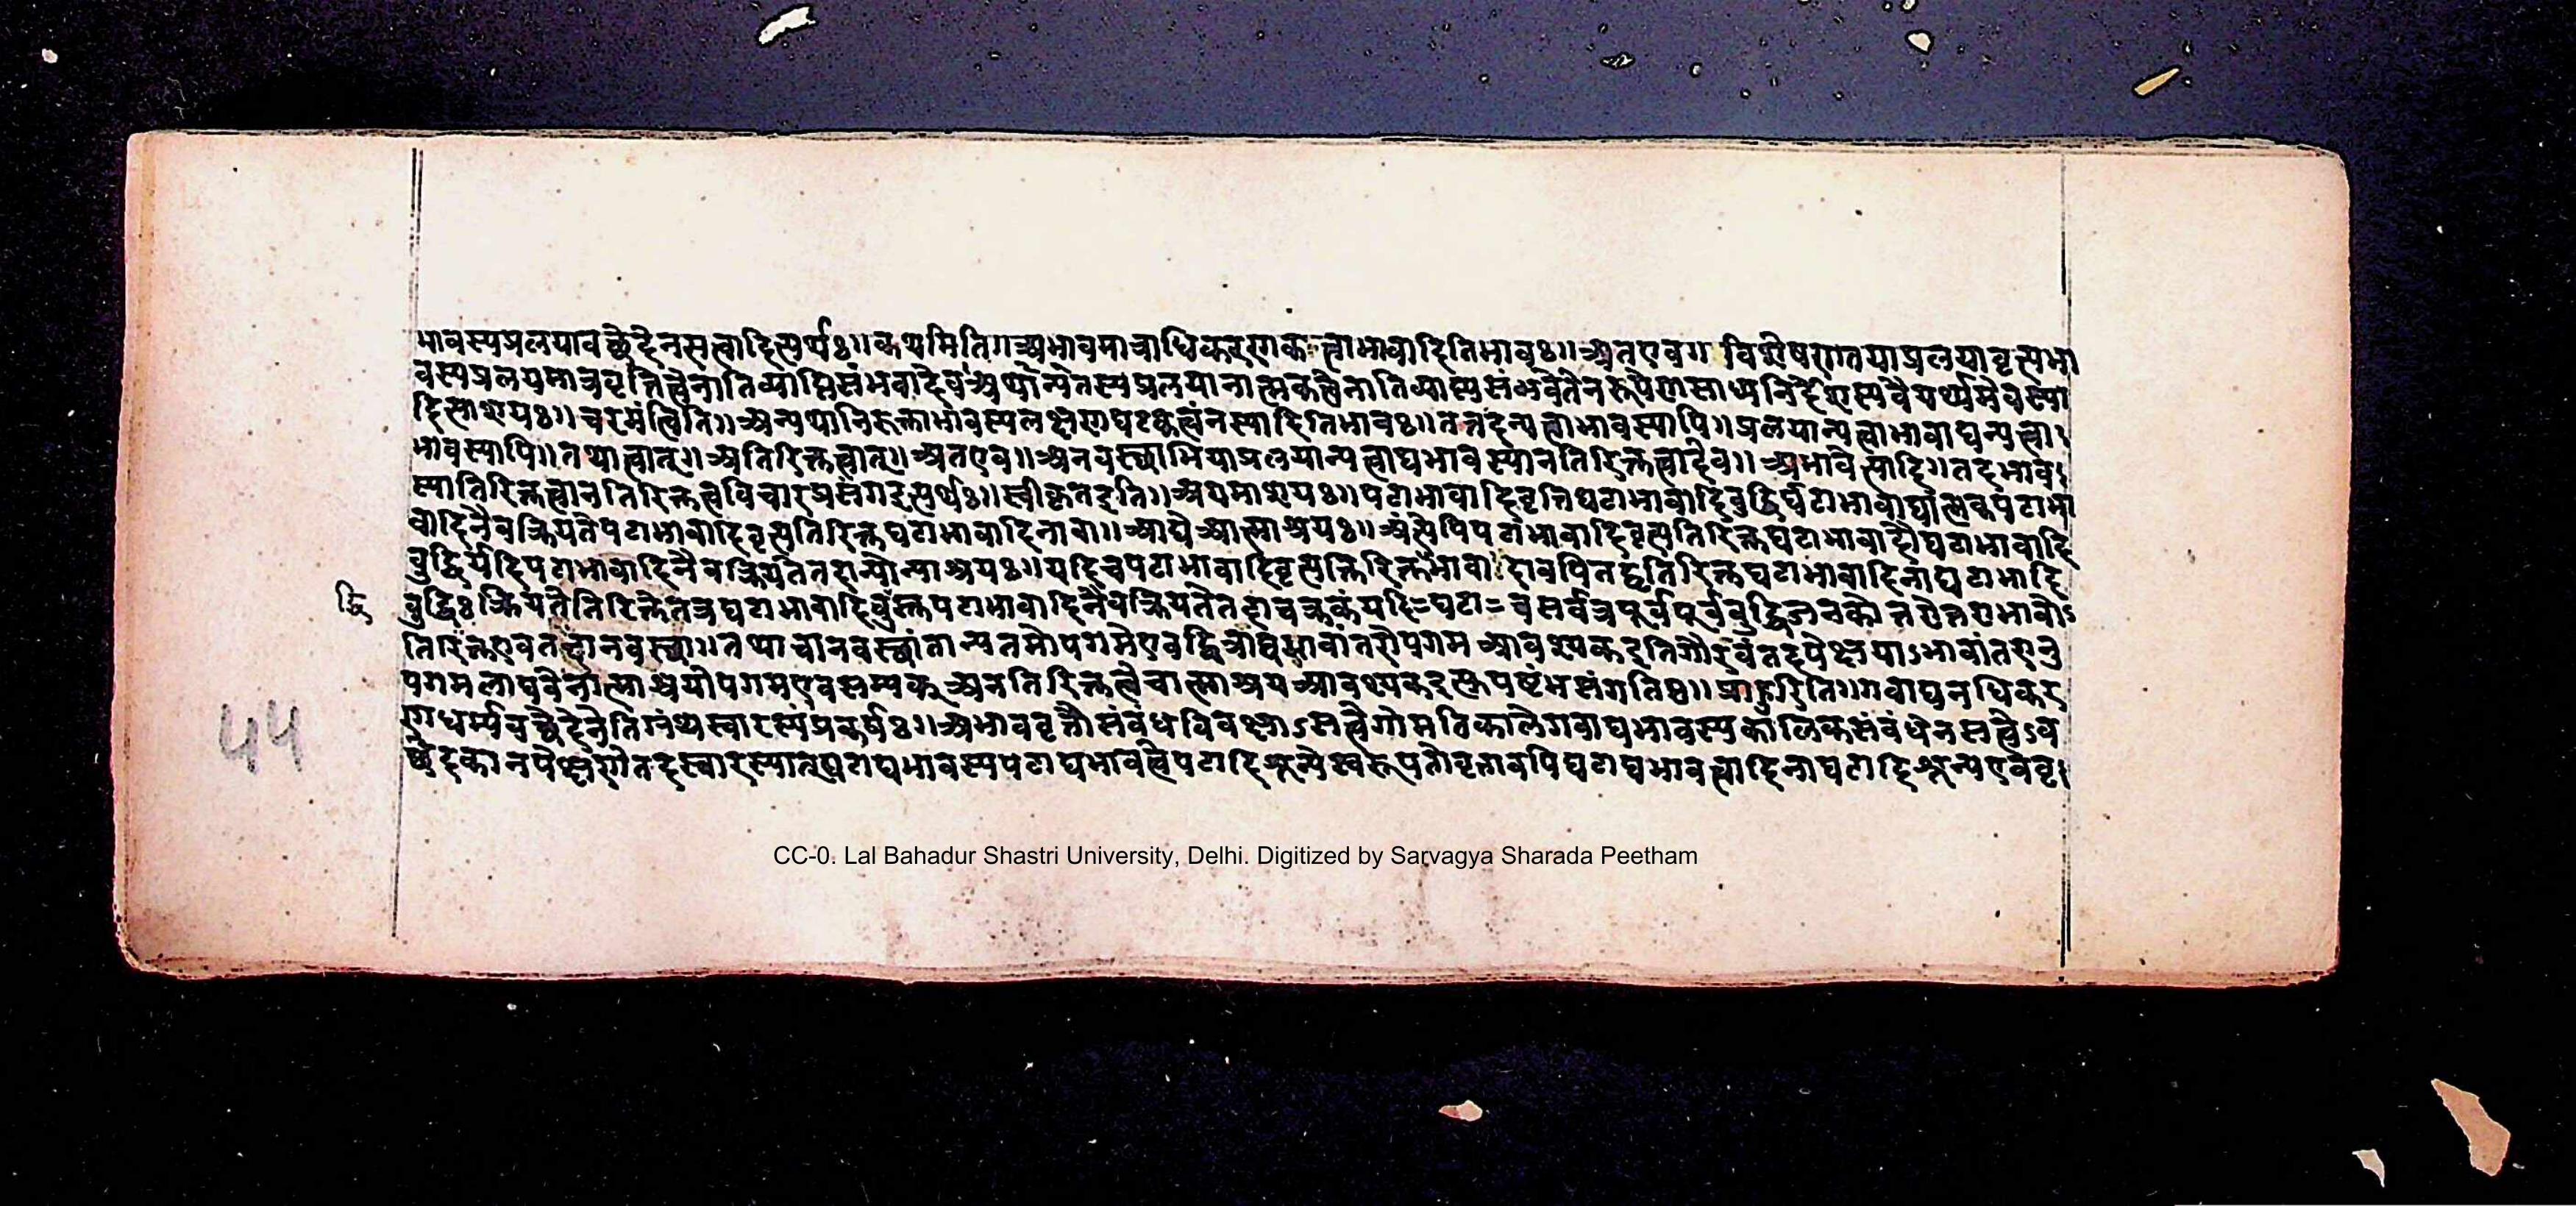 भावस्यप्रलयावच्छेदेनसत्वादित्यर्थः॥कथमिति॥अभावमात्राधिकरणकत्वाभावादितिभावः॥अतएव॥ विशेषणतयाप्रलयावृत्त्यभा
वस्यप्रलयमात्रवृत्तित्वेनातिव्याप्तिसंभवादेव॥अर्थान्येतस्यप्रलयानात्मकत्वेनातिव्याप्त्यसंभवेतेनरूपेणसाध्यनिर्देशस्यवैयर्थ्यमेवस्या
दित्याशयः॥चरमंत्विति॥अन्यथानिरुक्ताभावस्यलक्षणघटकत्वंनस्यादितिभावः॥तत्तदन्यत्वाभावस्यापि॥प्रलयान्यत्वाभावाद्यन्यत्वा
भावस्यापि॥तथात्वात्॥अतिरिक्तत्वात्॥अतएव॥अनवस्थाभियाप्रलयान्यत्वाद्यभावस्यानतिरिक्तत्वादेव॥अभावेत्यादि॥तदभाव
स्यातिरिक्तत्वानतिरिक्तत्वविचारप्रसंगइत्यर्थः॥स्वीकृतइति॥अयमाशयः॥पटाभावादिवृत्तिघटाभावादिबुद्धिर्घटाभावाद्यात्मकपटाभा
वादिनैवक्रियतेपटाभावादिवृत्त्यतिरिक्तघटाभावादिनावा॥आद्येआत्माश्रयः॥अंत्येपिपटाभावादिवृत्त्यतिरिक्तघटाभावादौघटाभावादि
बुद्धिर्यदिपटाभावादिनैवक्रियतेतदान्योन्याश्रयः॥यदिचपटाभावादिवृत्त्यतिरिक्ताभावादावपितद्वृत्तिरिक्तघटाभावादिनाघटाभादि
द्धि
बुद्धिःक्रियतेतिरिक्तेतत्रघटाभावादिबुद्धिस्तुपटाभावादिनैवक्रियतेतदाचक्रकंयदि=घटा=चसर्वत्रपूर्वपूर्वबुद्धिजनकोत्तरोत्तराभावोऽ
तिरिक्तएवतदानवस्था॥तथाचानवस्थांतान्यतमोपगमेएवद्वित्राद्यभावांतरोपगमआवश्यकइतिगौरवंतदपेक्षयाऽभावांतरानु
पगमलाघवेनात्माश्रयोपगमएवसम्यक्अनतिरिक्तत्वेचात्माश्रयआवश्यकइत्युपष्टंभसंगतिः॥प्राहुरिति॥गवाद्यनधिकर
णधर्म्यवच्छेदेनेतिग्रंथस्वारस्यंप्रकर्षः॥अभाववृत्तौसंबंधविवक्षाऽसत्वेगोमतिकालेगवाद्यभावस्यकालिकसंबंधेनसत्वेऽव
च्छेदकानपेक्षणेतदस्वारस्यात्घटाद्यभावस्यपटाद्यभावत्वेपटादिशून्येस्वरूपतोवृत्तावपिघटाद्यभावत्वादिनाघटादिशून्यएववृ
४५
CC-0. Lal Bahadur Shastri University, Delhi. Digitized by Sarvagya Sharada Peetham